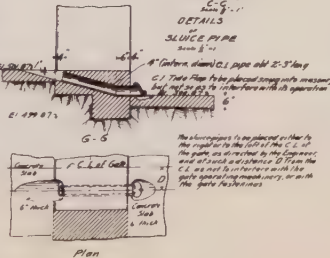 C-C
Scale ½" = 1'
DETAILS
OF
SLUICE PIPE
Scale ½" = 1'
4" (intern. diam) C.I. pipe abt 2'-3" long
C.I. Tide Flap to be placed snug into masonry
but not so as to interfere with its operation
6"
El 499.87±
G-G
The sluice pipes to be placed either to
the right or to the left of the C.L. of
the gate, as directed by the Engineer,
and at such a distance D from the
C.L. as not to interfere with the
gate operating machinery, or with
the gate fastenings
C.L. of Gate
Concrete
Slab
6" thick
Concrete
Slab
6 thick
Plan